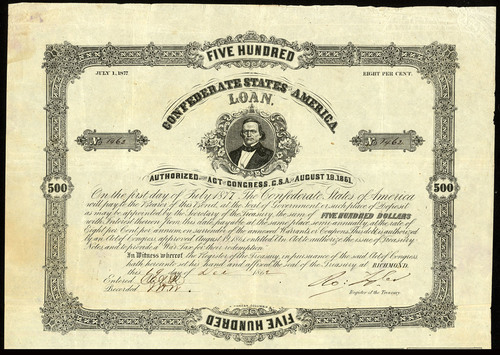 FIVE HUNDRED
JULY 1, 1877.
EIGHT PER CENT.
CONFEDERATE STATES AMERICA.
LOAN.
No 1962
No 1962
AUTHORIZED ACT CONGRESS, C.S.A. AUGUST 19.1861.
500
500
On the first day of July 1877 The Confederate States of America
will pay to the Bearer of this Bond, at the Seat of Government or such place of Deposit
as may be appointed by the Secretary of the Treasury, the sum of FIVE HUNDRED DOLLARS
with Interest thereon from this date, payable at the same place, semi annually, at the rate of
Eight per Cent per annum, on surrender of the annexed Warrants or Coupons. This debt is authorized
by an Act of Congress approved August 19, 1861, entitled An Act to authorize the issue of Treasury
Notes and to provide a War Tax for their redemption.
In Witness whereof the Register of the Treasury, in pursuance of the said Act of Congress
hath hereunto set his hand and affixed the seal of the Treasury at RICHMOND.
this day of Dec 1862
Entered
Recorded
Register of the Treasury
FIVE HUNDRED